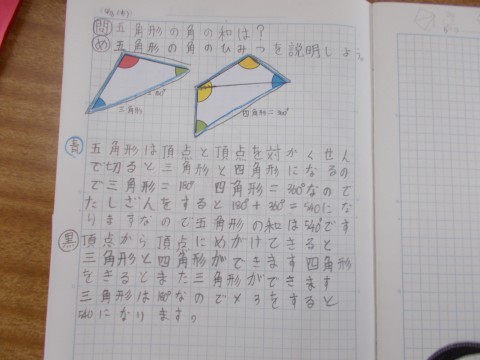 問 五角形の角の和は？
め 五角形の角のひみつを説明しよう。
三角形=180°
四角形=360°
青 五角形は頂点と頂点を対かくせん
で切ると三角形と四角形になるの
で三角形=180° 四角形=360°なので
たしざんをすると180°+360°=540にな
りますなので五角形の和は540°です
黒 頂点から頂点にめがけてきると
三角形と四角形ができます四角形
をきるとまた三角形ができます
三角形は180°なので×3をすると
540になります。